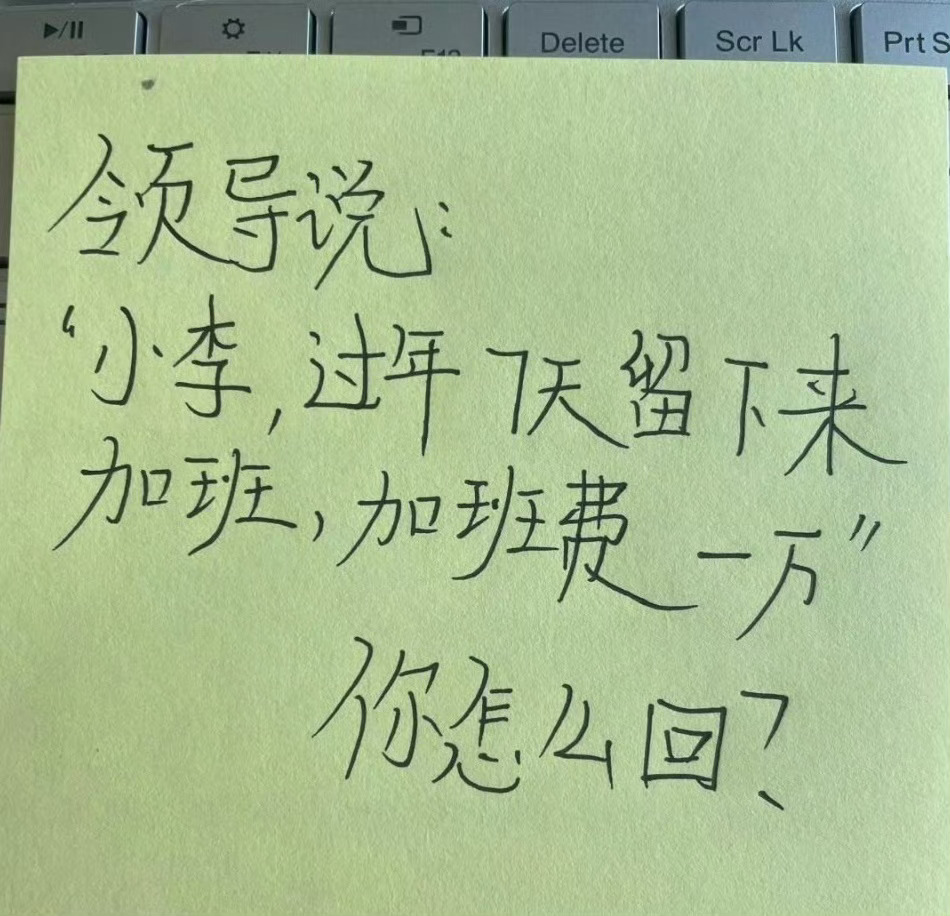 Delete
Scr Lk
Prt S
领导说:
“小李,过年7天留下来
加班,加班费一万”
你怎么回?